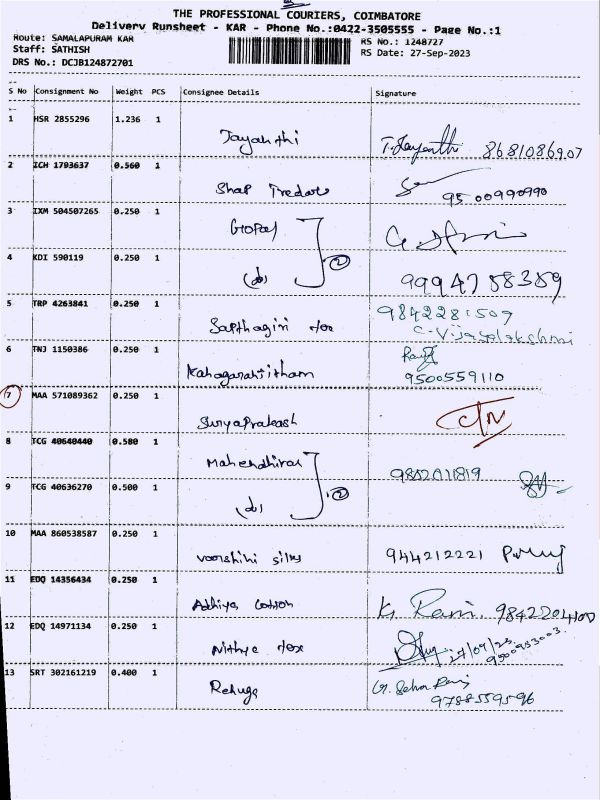 THE PROFESSIONAL COURIERS, COIMBATORE
Delivery Runsheet - KAR - Phone No.:0422-3505555 - Page No.:1
Route: SAMALAPURAM KAR
RS No.: 1248727
Staff: SATHISH
RS Date: 27-Sep-2023
DRS No.: DCJB124872701
S No Consignment No Weight PCS Consignee Details Signature
1 HSR 2855296 1.236 1
Jayanthi T. Jayanthi 8681086907
2 ICH 1793637 0.560 1
95 00990990
3 IXM 504507265 0.250 1
Gopal
4 KDI 590119 0.250 1
(do) 2 9994758389
5 TRP 4263841 0.250 1
Sapthagiri tex 9842281507
C. Vijayalakshmi
6 TNJ 1150386 0.250 1
9500559110
7 MAA 571089362 0.250 1
SuryaPrakash
8 TCG 40640440 0.580 1
9842011819
9 TCG 40636270 0.500 1
(do) 2
10 MAA 860538587 0.250 1
silks 944212221
11 EDQ 14356434 0.250 1
K. Rani. 9842204100
12 EDQ 14971134 0.250 1
Nithya tex 27/09/23.
9500953003.
13 SRT 302161219 0.400 1
9788559596